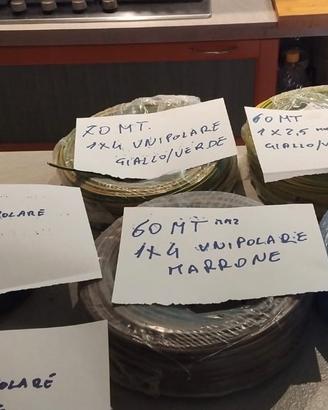 70 MT.
1X4 UNIPOLARE
GIALLO/VERDE
60 MT
1X2,5
GIALLO/V
POLARE
60 MT mm2
1X4 UNIPOLARE
MARRONE
OLARE